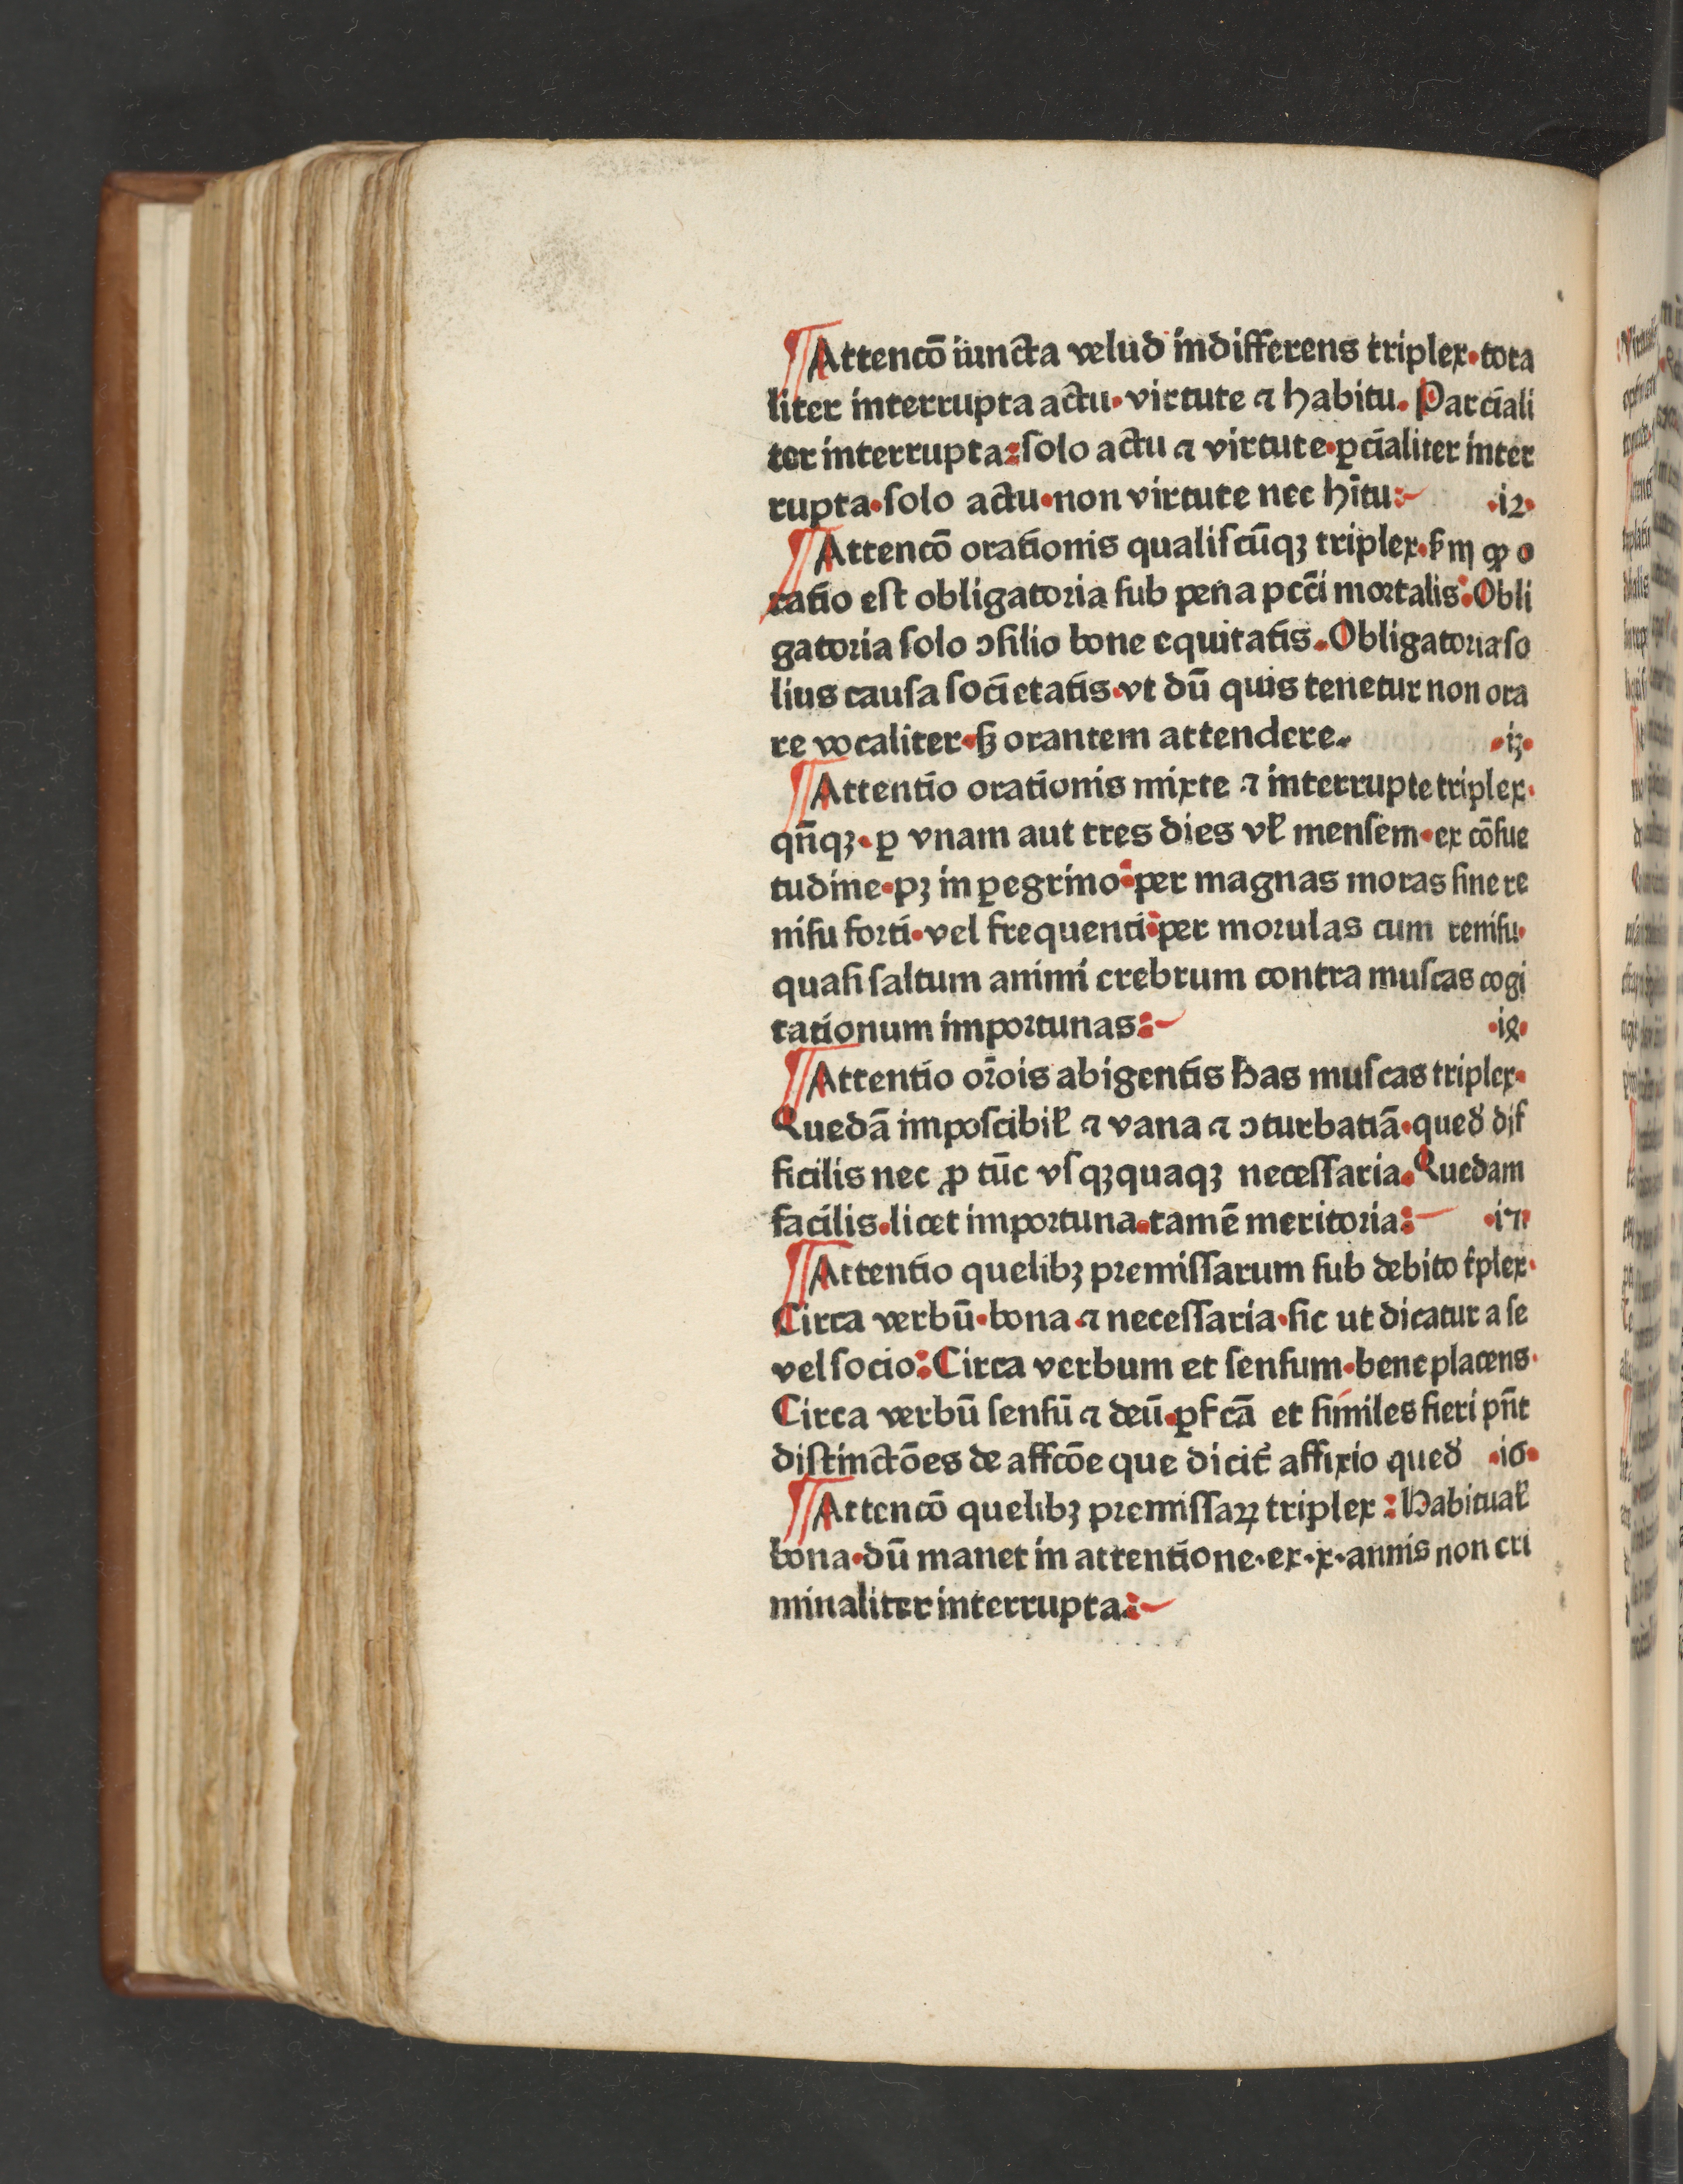 ¶Attencō iuncta velud indifferens triplex·tota
liter interrupta actu·virtute ⁊ habitu. Parciali
ter interrupta:ſolo actu ⁊ virtute·ꝑcialiter inter
rupta·ſolo actu·non virtute nec hītu: ·12·
¶Attencō orationis qualiſcūqꝫ triplex· ꝙ o
ratio eſt obligatoria ſub pena pcc̄i mortalis:Obli
gatoria ſolo ɔſilio bone equitatis.Obligatoria ſo
lius cauſa ſocietatis·vt dū quis tenetur non ora
re vocaliter·ſꝫ orantem attendere. ·13·
¶Attentio orationis mixte ⁊ interrupte triplex·
qn̄qꝫ·ꝑ vnam aut tres dies vł menſem·ex cōſue
tudine·pꝫ in ꝑegrino:per magnas moras ſine re
niſu forti·vel frequenti:per morulas cum reniſu·
quaſi ſaltum animi crebrum contra muſcas cogi
tationum importunas: ·1ꝝ·
¶Attentio or̄ois abigentis has muſcas triplex·
Quedā impoſcibił ⁊ vana ⁊ ɔturbatiā·qued̛ dif
ficilis nec ꝓ tūc vſqꝫquaqꝫ neceſſaria.Quedam
facilis·licet importuna·tamē meritoria: ·17·
¶Attentio quelibꝫ premiſſarum ſub debito t̛plex·
Circa verbū·bona·⁊ neceſſaria·ſic ut dicatur a ſe
vel ſocio:Circa verbum et ſenſum·bene placens·
Circa verbū ſenſū ⁊ deū·ꝑfcā et ſimiles fieri pn̄t
diſtinctōes de affcōe que dicit̛ affixio qued̛ ·16·
¶Attencō quelibꝫ premiſſaꝝ triplex:Habituał
bona·dū manet in attentione·ex·x·annis non cri
minaliter interrupta: